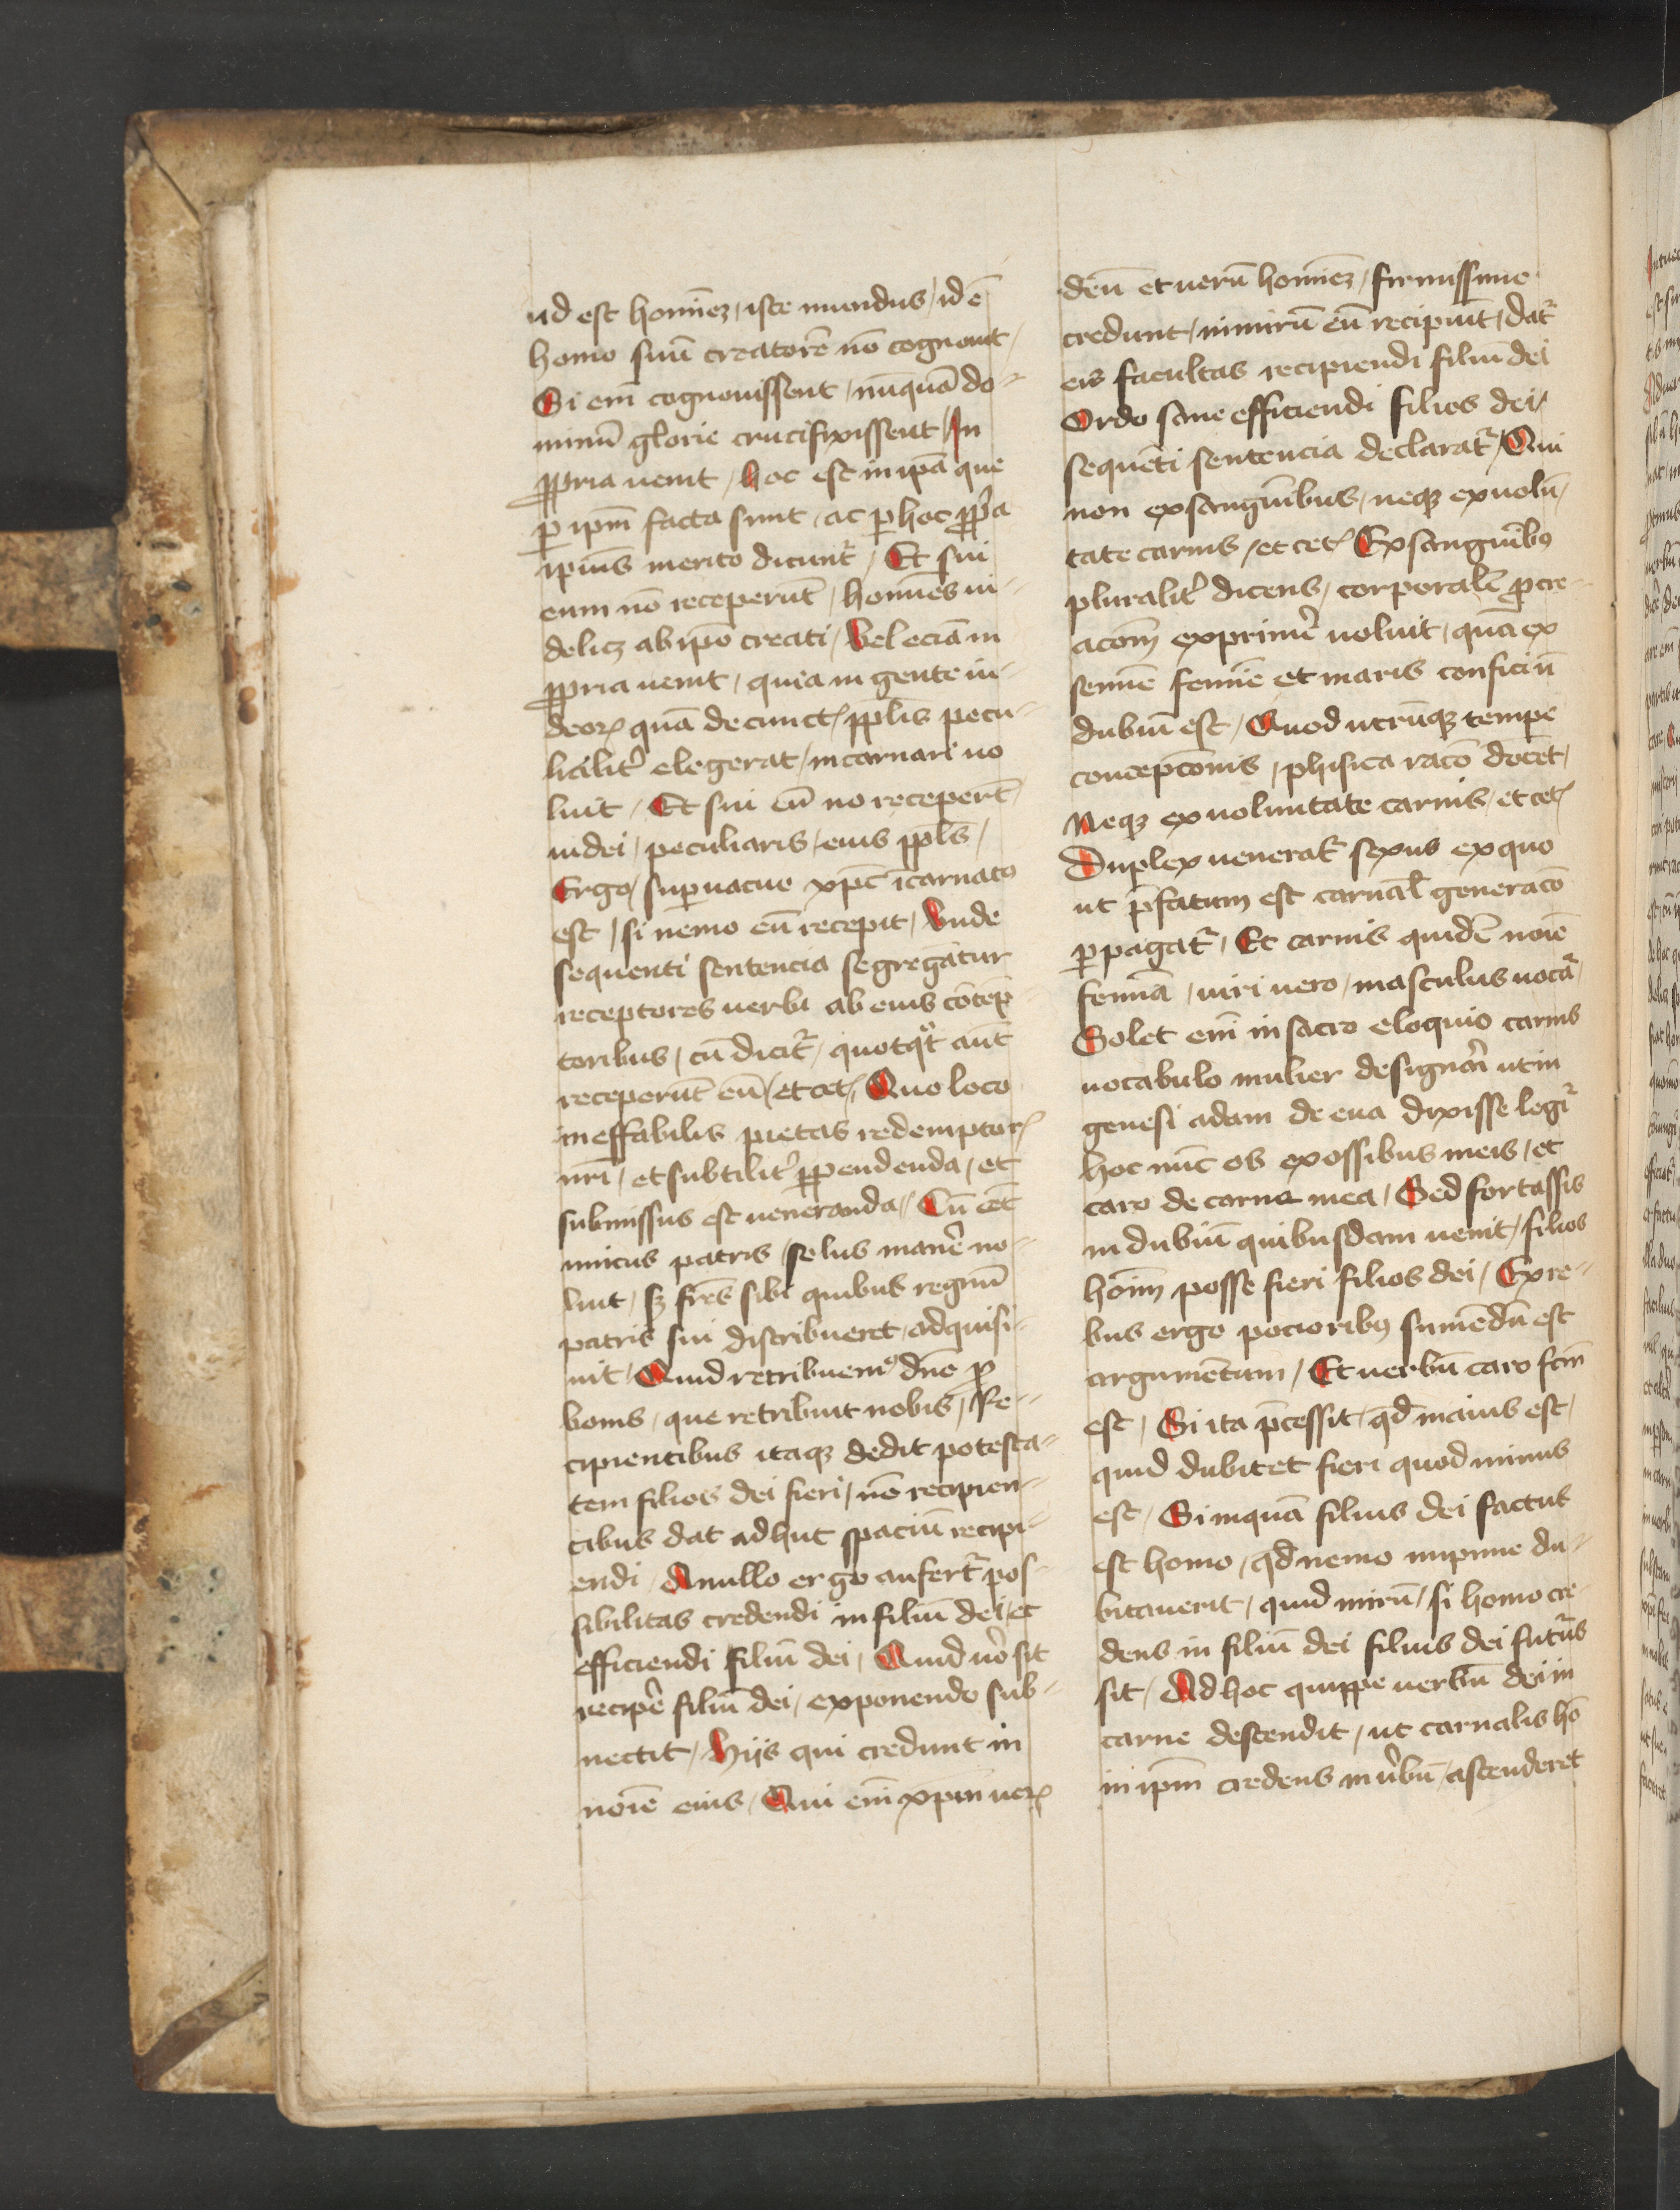 ud est hominē iste mundus / id ē
homo suū creatorē nō cognouit /
Si em̄ cognouissent / nūquā do-
minū glorie crucifixissent / In
ꝓpria uenit / hoc est in ip̄a que
ꝑ ip̄m facta sunt / ac ꝑ hoc ꝓp̄a
ip̄ius merito dicunt᷑ / Et sui
eum nō receperūt / homines in-
delicꝫ ab ip̄o creati / Vel eciā in
ꝓpria uenit / quia in gente iu-
deoꝝ quā de cunct᷑ pp̄lis pecu-
lialit᷑ elegerat / incarnari uo
luit / Et sui eū nō recepert̄
iudei / peculiaris / eius pp̄ls /
Ergo / suꝑuacue xp̄c īcarnatꝰ
est / si nemo eū recepit / Vnde
sequenti sentencia segregātur
receptores uerbi ab eius cōtep̄
toribus / cū dicit᷑ / quotqͦt aūt
receperūt eū / et cet᷑ / Quo loco
ineffabilis pietas redemptor᷑
nr̄i / et subtilit᷑ ꝑpendenda / et
submissus est ueneranda / Cū eēt
unicus patris / solus manē᷑ no-
luit / sꝫ fr̄es sibi quibus regnū
patris sui distribueret adquisi-
uit / Quid retribuemꝰ dn̄o ꝓ
bonis / que retribuit nobis / Re-
cipientibus itaqꝫ dedit potesta-
tem filios dei fieri / nō recipien-
cibus dat adhuc spaciū recipi-
endi / A nullo ergo aufert᷑ pos-
sibilitas credendi in filiū dei / et
efficiendi filiū dei / Quid uo sit
recipē᷑ filiū dei / exponendo sub-
nectit / Hijs qui credunt in
noīe eius / Qui em̄ xp̄m ueꝝ
deū et uerū hominē / firmissime
credunt / nimirū eū recipiūt / dat᷑
eis facultas recipiendi filiū dei
Ordo sane efficiendi filios dei /
sequēti sentencia declarat᷑ / Qui
non ex sanguībus / neqꝫ ex uolū /
tate carnis / et cet᷑ Ex sanguībꝰ
pluralit᷑ dicens / corporalē ꝓcre-
acōm exprimē᷑ uoluit / quā ex
semīe femīe et maris confici ū
dubiū est / Quod utrūqꝫ tempe
concepcōnis / phisica racō docet /
Neqꝫ ex uoluntate carnis / et cet᷑
Duplex uenerat᷑ sexus ex quo
ut p̄fatum est carnal̄ generacō
ꝓpagat᷑ / Et carnis quidē noīe
feminā / uiri uero / masculus uocat᷑ /
Solet em̄ in sacro eloquio carnis
uocabulo mulier designari ut in
genesi adam de eua dixisse legi᷑
hoc nūc os ex ossibus meis / et
caro de carne mea / Sed fortassis
in dubiū quibusdam uenit / filios
hoīm posse fieri filios dei / Ex re-
bus ergo pocioribꝰ sumēdū est
argumētum / Et uerbū caro fcm̄
est / Si ita p̄cessit / qd̄ maius est /
quid dubitet fieri quod minus
est / Si inquā filius dei factus
est homo / qd̄ nemo impune du-
bitauerit / quid mirū / si homo cre-
dens in filiū dei filius dei futurus
sit / Ad hoc quippe uerbū dei in
carne descendit / ut carnalis hō
in ip̄m credens in u᷑bū / ascenderet